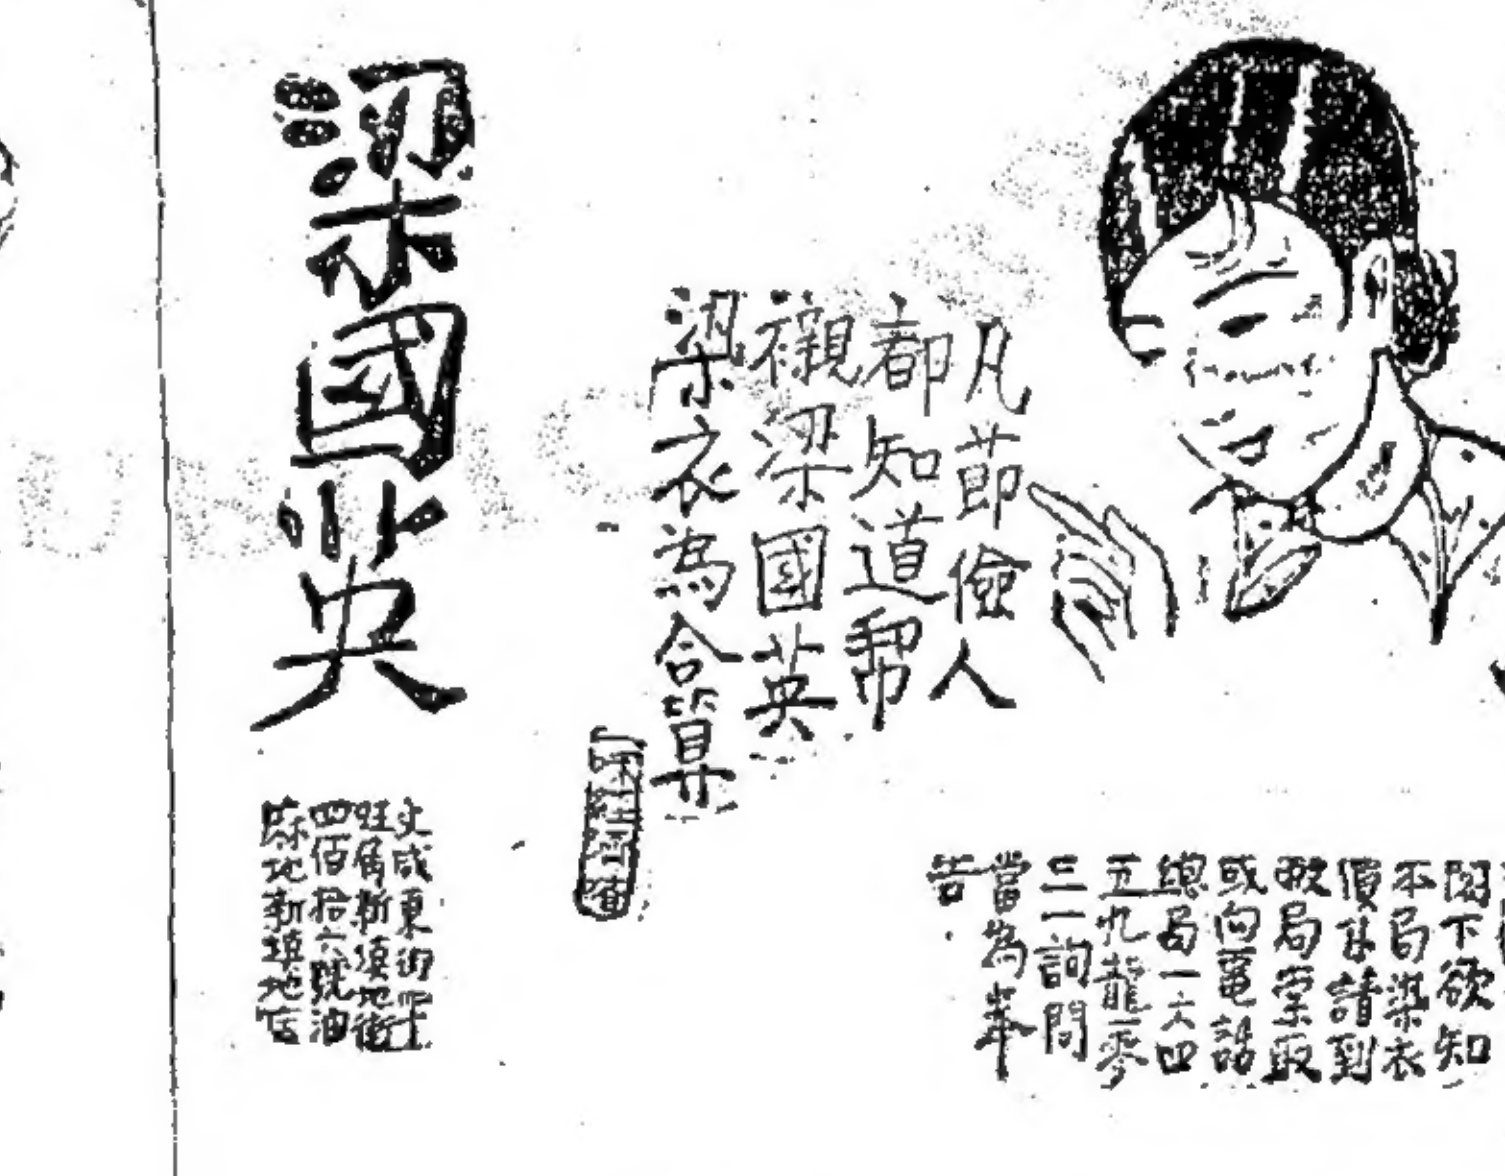 凡節儉人
都知道幇
襯梁國英
染衣為合算
梁國英
閣下欲知
本局染衣
價目請到
敝局索取
或向電話
總局一六四
五九龍零
三一詢問
當為奉
告
文咸東街四十
旺角新填地街
四佰拾六號油
蔴地新填地街